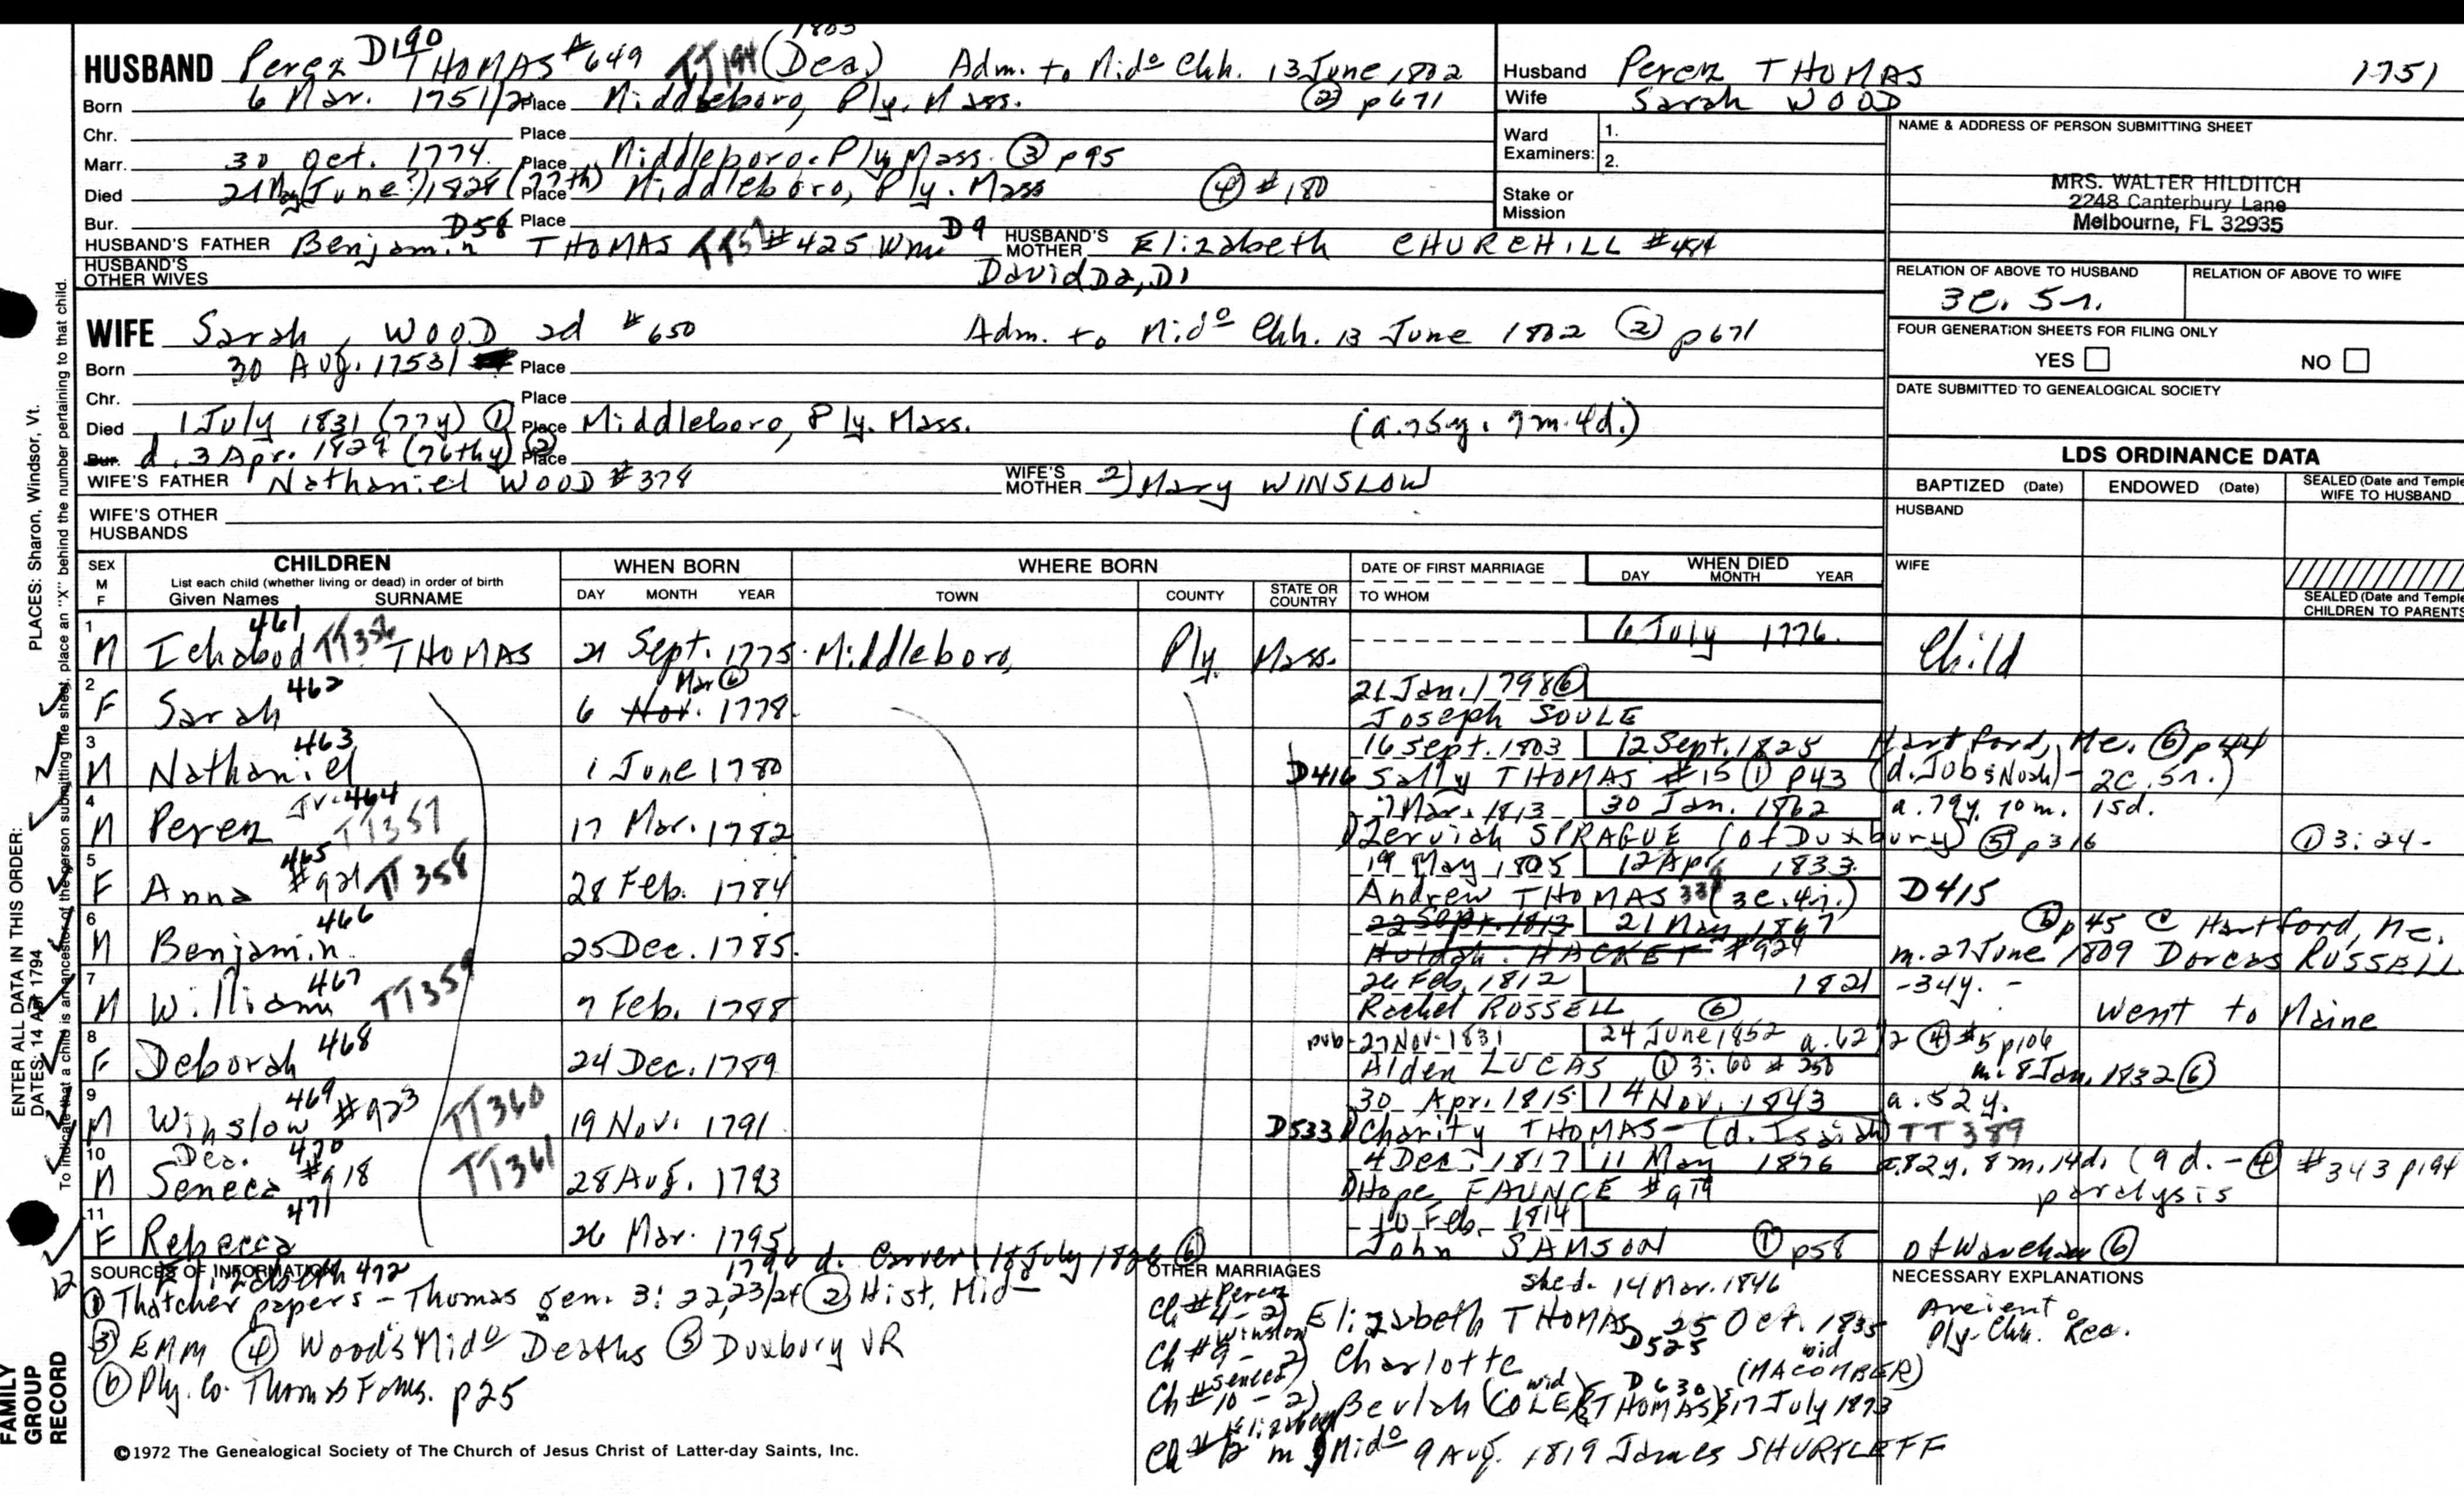 1803
HUSBAND Perez D190 THOMAS #649 TT194 (Dea.) Adm. to Mido Chh. 13 June 1802
Born 6 Mar. 1751/2 Place Middleboro, Ply. Mass. ② p671
Chr. Place
Marr. 30 Oct. 1774. Place Middleboro. Ply Mass. ③ p95
Died 21 May (June?) 1828 (77th) Place Middleboro, Ply. Mass ④ #180
Bur. D58 Place D9
HUSBAND'S FATHER Benjamin THOMAS #425 Wm HUSBAND'S MOTHER Elizabeth CHURCHILL #484
HUSBAND'S OTHER WIVES David D2, D1
WIFE Sarah, WOOD 2d #650 Adm. to Mido Chh. 13 June 1802 ② p671
Born 30 Aug. 1753/ Place
Chr. Place
Died 1 July 1831 (77y) ① Place Middleboro, Ply. Mass. (a. 75y. 7m. 4d.)
Bur. d. 3 Apr. 1829 (76thy) ② Place
WIFE'S FATHER Nathaniel WOOD #378 WIFE'S MOTHER 2) Mary WINSLOW
WIFE'S OTHER HUSBANDS
Husband Perez THOMAS 1751
Wife Sarah WOOD
Ward Examiners: 1.
2.
Stake or Mission
NAME & ADDRESS OF PERSON SUBMITTING SHEET
MRS. WALTER HILDITCH
2248 Canterbury Lane
Melbourne, FL 32935
RELATION OF ABOVE TO HUSBAND RELATION OF ABOVE TO WIFE
3c. 5r.
FOUR GENERATION SHEETS FOR FILING ONLY
YES NO
DATE SUBMITTED TO GENEALOGICAL SOCIETY
LDS ORDINANCE DATA
BAPTIZED (Date) ENDOWED (Date) SEALED (Date and Temple WIFE TO HUSBAND
HUSBAND
WIFE
SEALED (Date and Temple CHILDREN TO PARENTS
SEX M F
CHILDREN
List each child (whether living or dead) in order of birth
Given Names SURNAME
WHEN BORN
DAY MONTH YEAR
WHERE BORN
TOWN COUNTY STATE OR COUNTRY
DATE OF FIRST MARRIAGE
TO WHOM
WHEN DIED
DAY MONTH YEAR
1 M Ichabod 461 TT356 THOMAS 21 Sept. 1775. Middleboro, Ply. Mass. 6 July 1776. Child
2 F Sarah 462 6 Nov. Mar ⑥ 1778. 21 Jan. 1798 ⑥
Joseph SOULE
3 M Nathaniel 463 1 June 1780 16 Sept. 1803 12 Sept. 1825 Hartford, Me. ⑥ p44
D416 Sally THOMAS #15 ① p43 (d. Job & Noah) - 2c. 5r.)
4 M Perez Jr. 464 TT357 17 Mar. 1782 7 Mar. 1813 30 Jan. 1862 a. 79y. 10m. 15d.
Zerviah SPRAGUE (of Duxbury) ⑤ p316 ① 3:24-
5 F Anna 465 #921 TT358 28 Feb. 1784 19 May 1805 12 Apr. 1833.
Andrew THOMAS (3c. 4r.) D415
6 M Benjamin 466 25 Dec. 1785. 22 Sept. 1813 21 May 1867 ⑥ p45 @ Hartford, Me.
Huldah HACKET #924 m. 27 June 1809 Dorcas RUSSELL
7 M William 467 TT359 7 Feb. 1788 26 Feb. 1812 1821 -34y. -
Rachel RUSSELL ⑥ Went to Maine
8 F Deborah 468 24 Dec. 1789 pub-27 Nov. 1831 24 June 1852 a. 62 1/2 ④ #5 p106
Alden LUCAS ① 3:60 #250 m. 8 Jan. 1832 ⑥
9 M Winslow 469 #923 TT360 19 Nov. 1791 30 Apr. 1815 14 Nov. 1843 a. 52y.
D533 Charity THOMAS - (d. Isaiah) TT389
10 M Dea. Seneca 470 #918 TT361 28 Aug. 1793 4 Dec. 1817 11 May 1876 a. 82y. 8m. 14d. (9d. - ④ #343 p194
Hope FAUNCE #919 paralysis
11 F Rebecca 471 26 Mar. 1795 10 Feb. 1814
John SAMSON ① p58 of Wareham ⑥
12 Elizabeth 472 1796 d. Carver 18 July 1826 ⑥
SOURCES OF INFORMATION
① Thatcher papers - Thomas gen. 3: 22, 23/24 ② Hist. Mid-
③ EMM ④ Wood's Mido Deaths ⑤ Duxbury VR
⑥ Ply. Co. Thomas Fams. p25
OTHER MARRIAGES
she d. 14 Mar. 1846
Ch #4 - 2) Perez Elizabeth THOMAS 25 Oct. 1835
Ch #9 - 2) Winslow Charlotte D525
Ch #10 - 2) Seneca Beulah (COLE) THOMAS wid D630 wid (MACOMBER) 17 July 1873
Ch #12 Elizabeth m. Mido 9 Aug. 1819 James SHURTLEFF
NECESSARY EXPLANATIONS
Ancient
Ply. Chh. Rec.
©1972 The Genealogical Society of The Church of Jesus Christ of Latter-day Saints, Inc.
FAMILY GROUP RECORD
ENTER ALL DATA IN THIS ORDER:
DATES: 14 Apr 1794
PLACES: Sharon, Windsor, Vt.
To indicate that a child is an ancestor of the person submitting the sheet, place an "X" behind the number pertaining to that child.